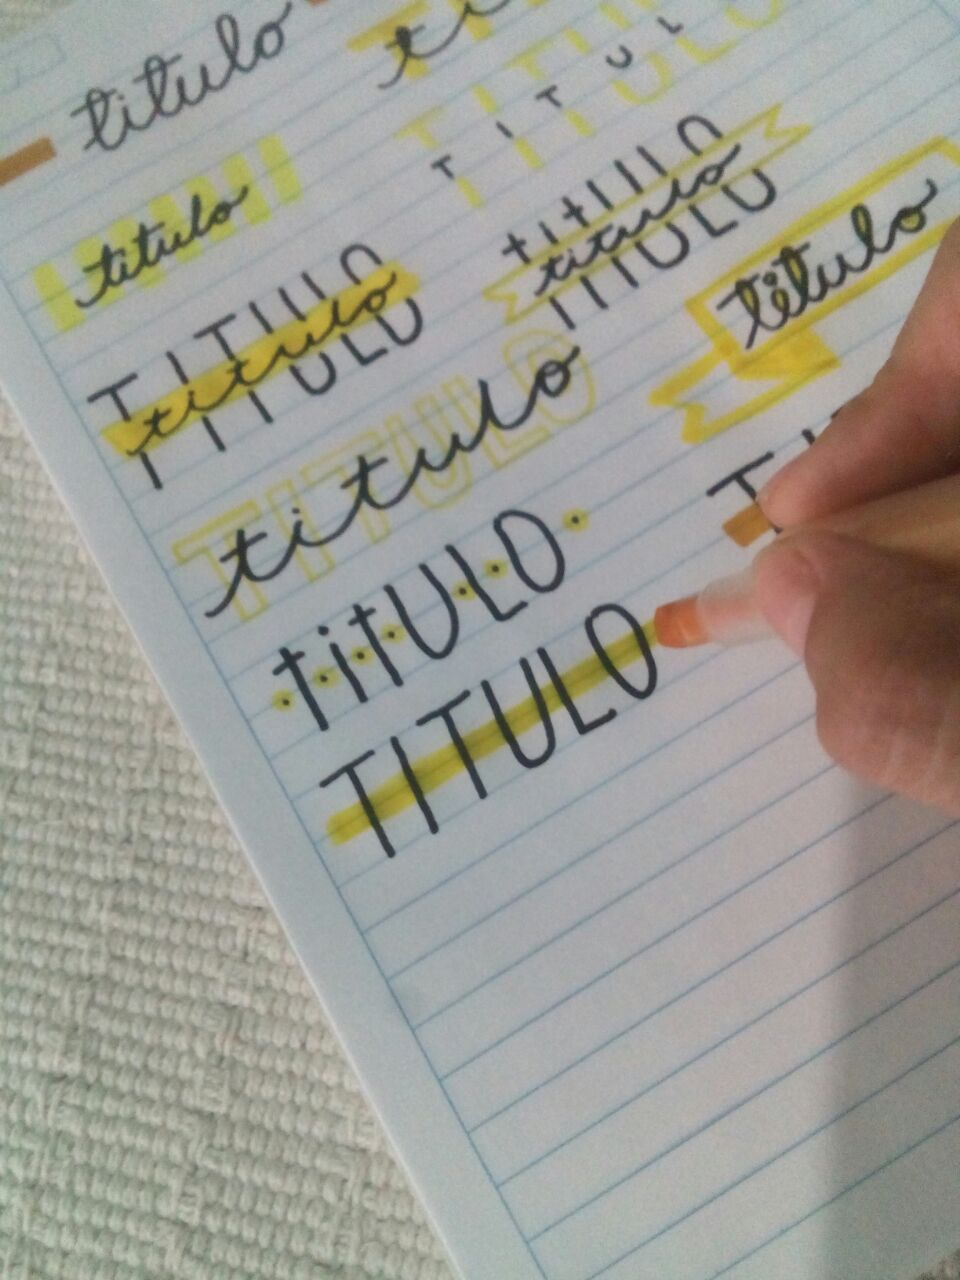 titulo
ti
titulo
TITULO
T I T U L
TITULO
titulo
TITULO
titulo
titulo
TITULO
titulo
TiTULO
TI
TITULO